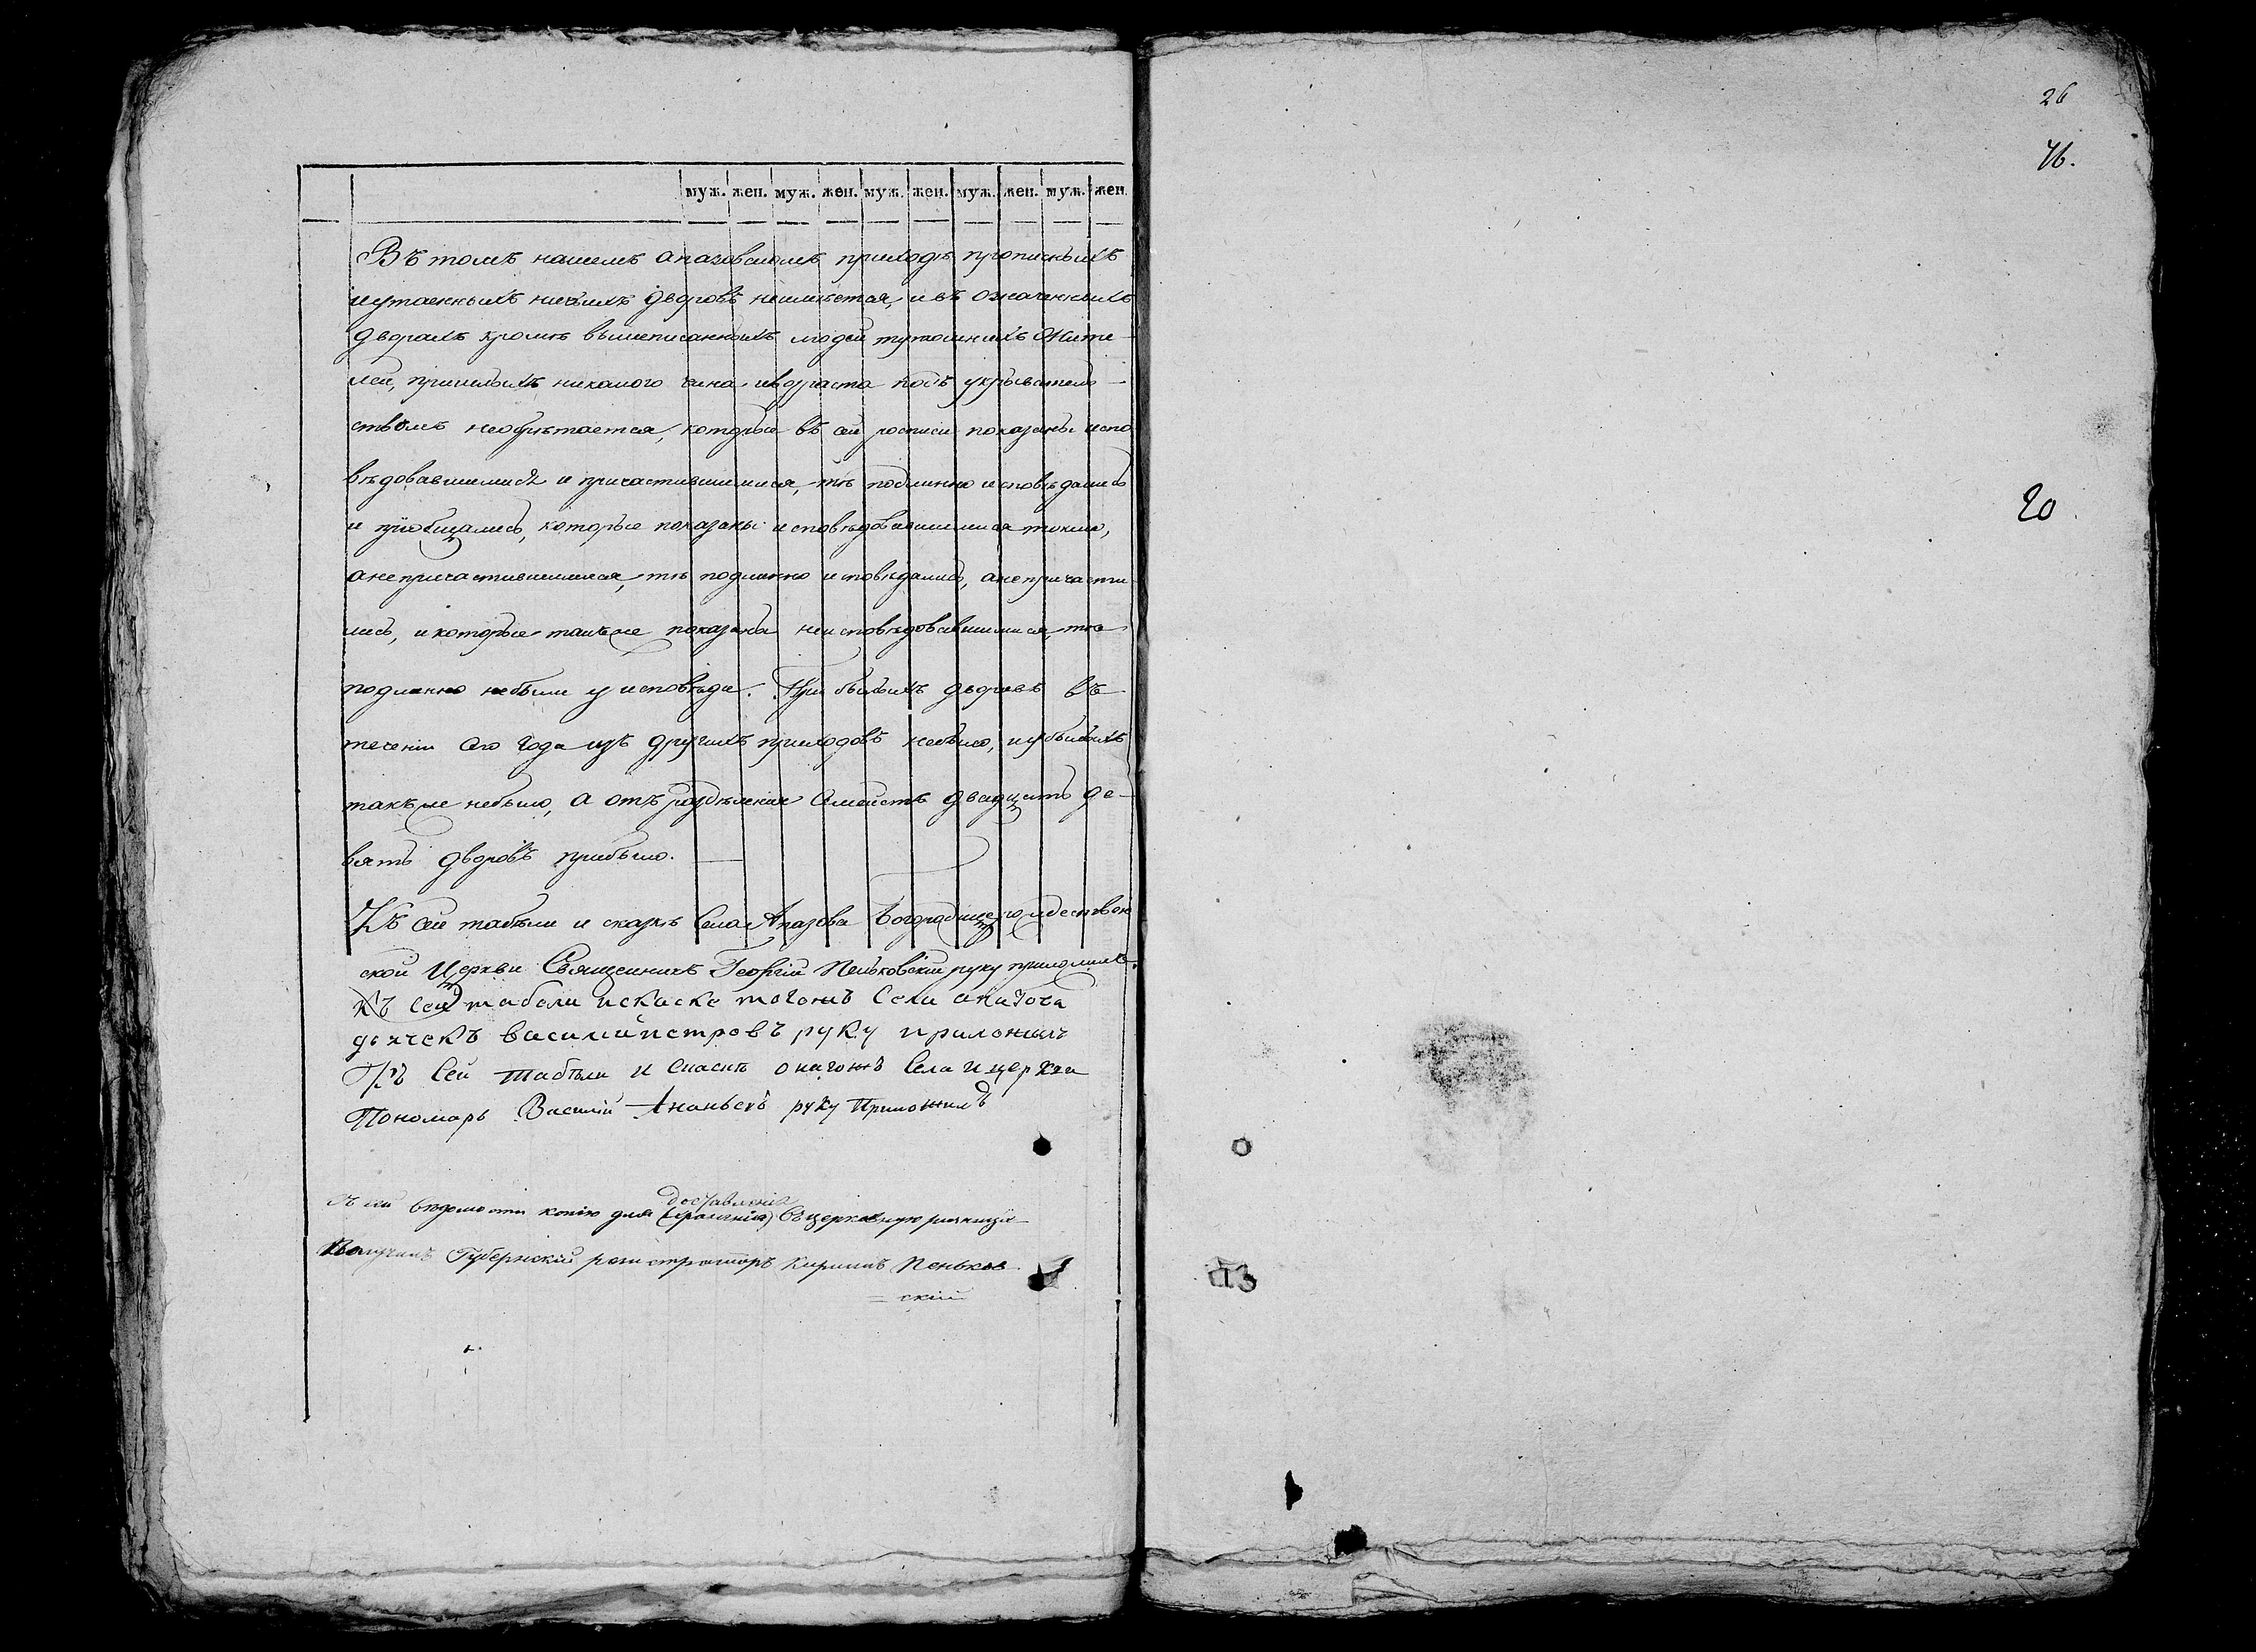 муж. жен. муж. жен. муж. жен. муж. жен. муж. жен.
Въ томъ нашемъ апазовскомъ приходѣ прописныхъ
и утаенныхъ ничьихъ дворовъ неимѣется, и въ означенныхъ
дворахъ кромѣ вышеписанныхъ людей тутошнихъ Жите-
лей, пришлыхъ никакого чина и возраста подъ укрыватель-
ствомъ необрѣтается, которые въ сей росписи показаны испо
вѣдовавшимися и причастившимися, тѣ подлинно исповѣдались
и приобщались, которые показаны исповѣдовавшимися токмо,
а непричастившимися, тѣ подлинно исповѣдались, а непричасти-
лись, и которые такъже показаны неисповѣдовавшимися, тѣ
подлинно небыли у исповѣди. Прибылыхъ дворовъ въ
теченіи сего года изъ другихъ приходовъ небыло, и убылыхъ
такъже небыло, а отъ раздѣленія Семействъ двадцать де-
вять дворовъ прибыло.
Къ сей табели и сказкѣ Села Апазова Богородицерождествен
ской Церкви Священникъ Георгій Пеньковскій руку приложилъ.
Къ сей табели искаске тогожъ Села апазова
дьячекъ василийпетровъ руку приложилъ
Къ Сей табѣли и Скаскѣ онагожъ Села ицеркви
Пономарь Василій Ананьевъ руку Приложилъ
доставленія
Съ сей вѣдомости копію для (храненія) въ церковную ризницу
Получилъ Губернскій регистраторъ Кирилъ Пеньков
= скій
26
76.
20